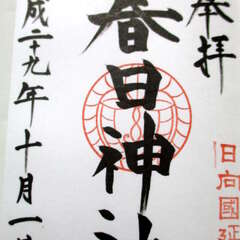 奉拝
旧向國延
春日神社
成二十九年十月一